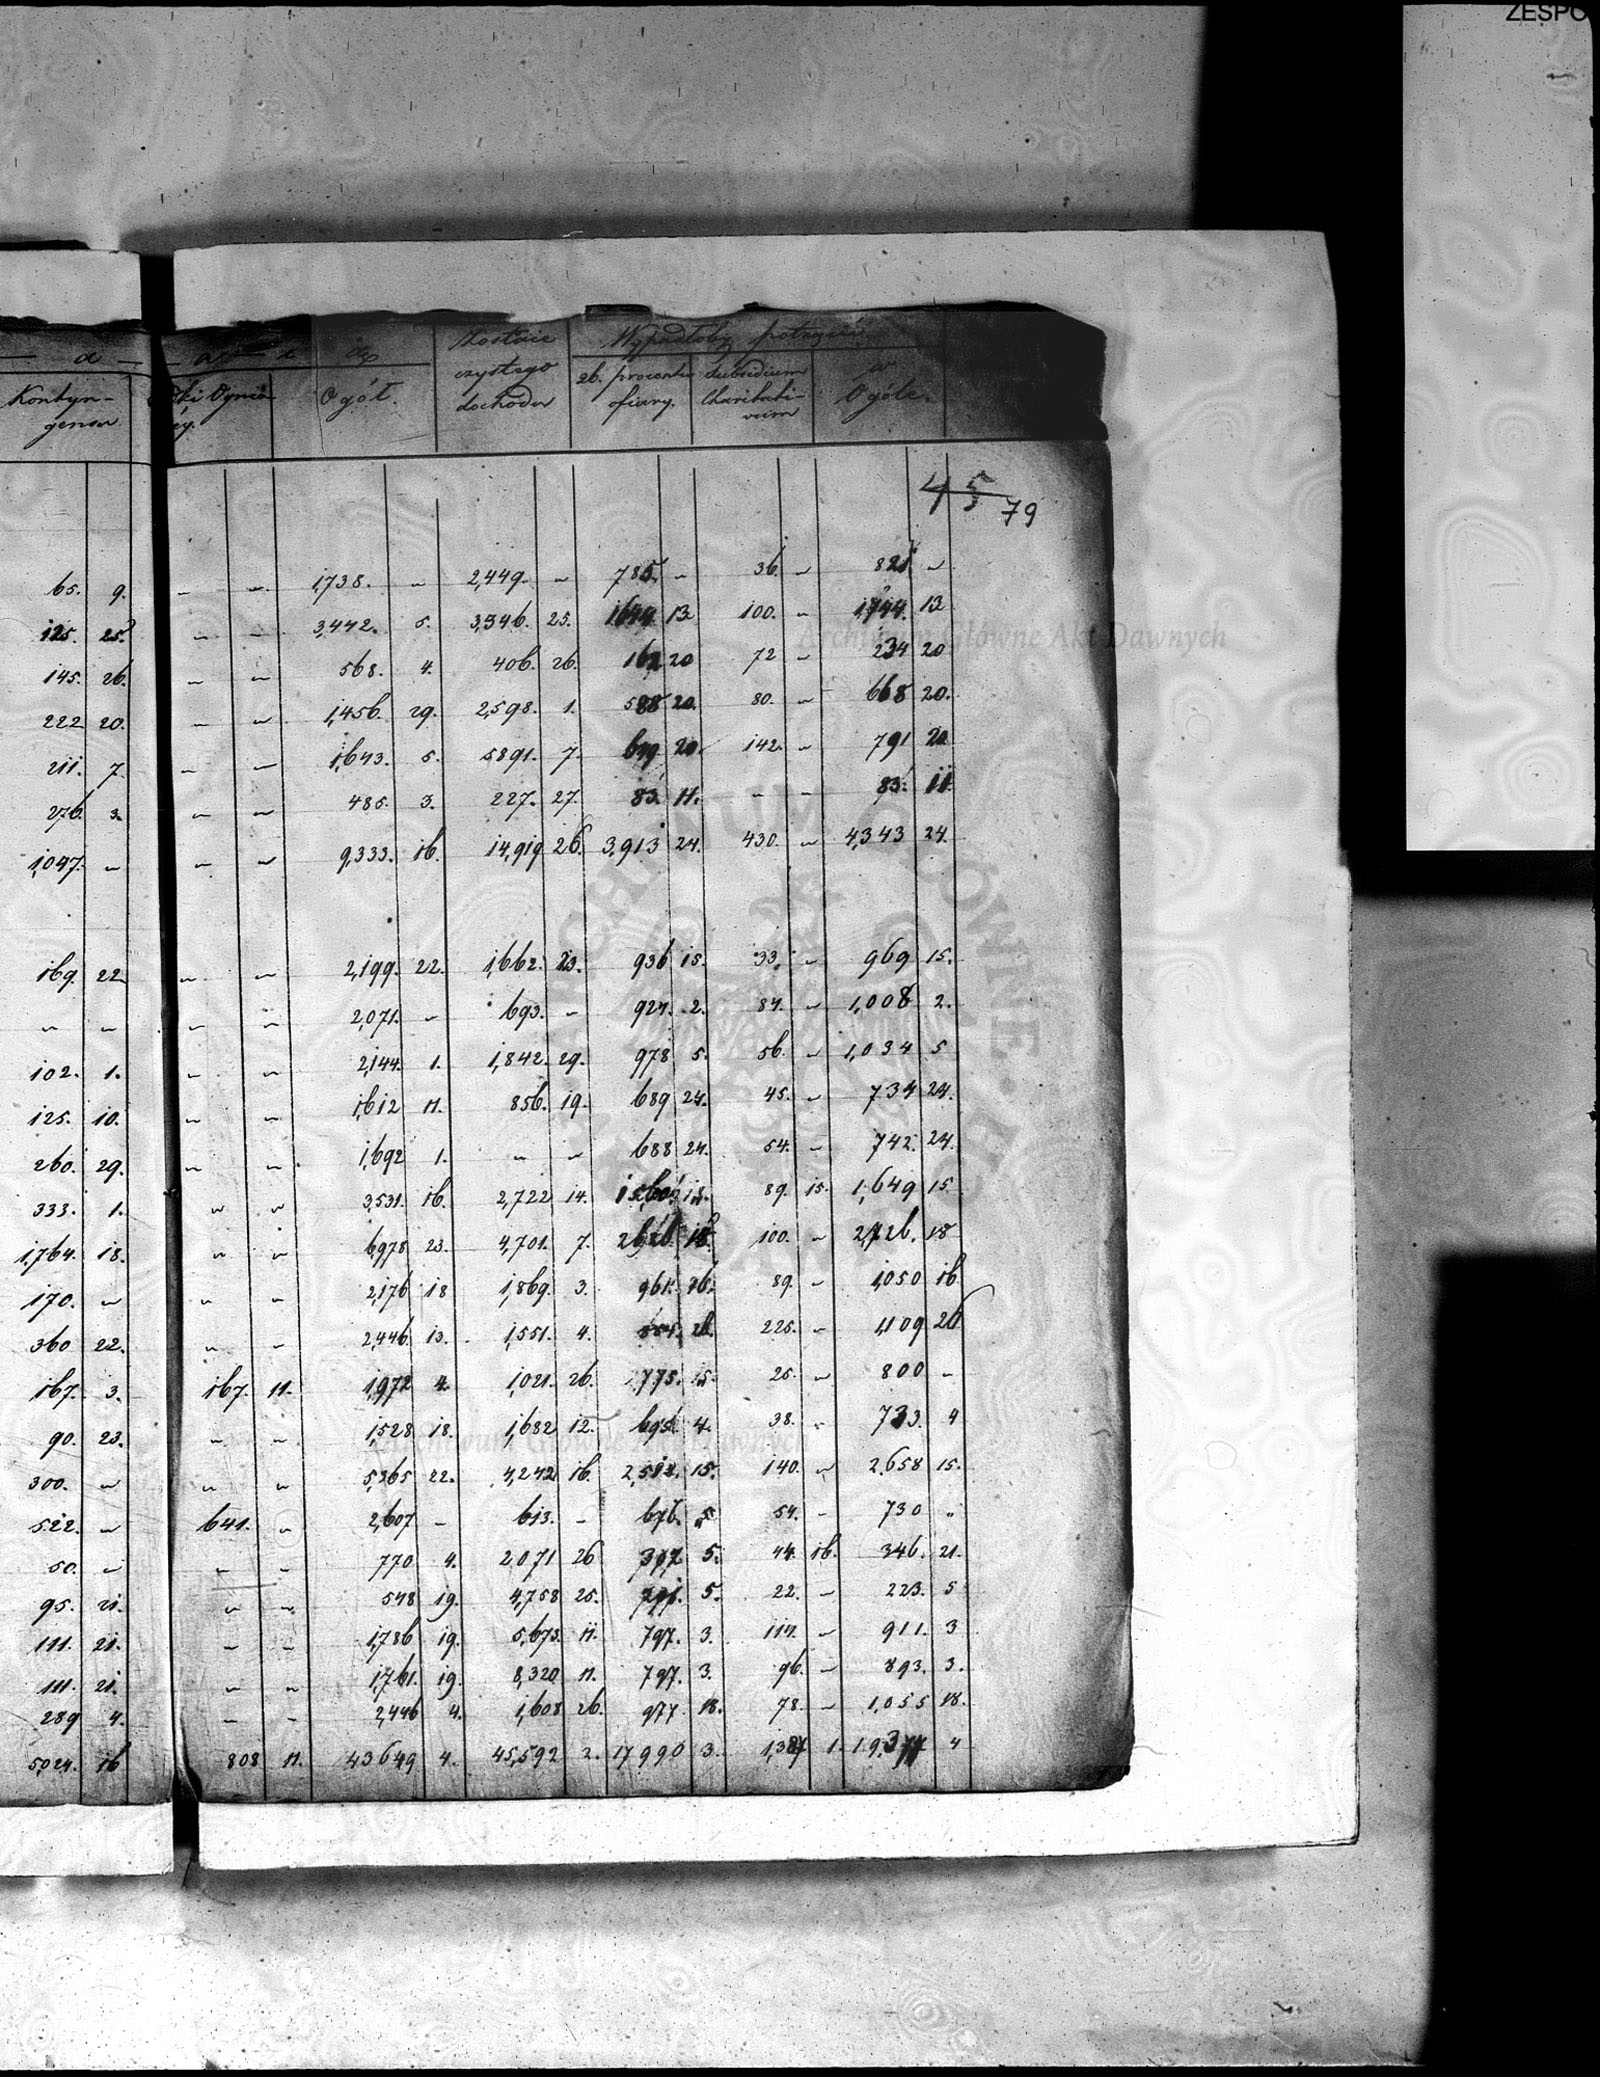 ZESPO
Zostaie Wypadłoby potrącić
Kontyn- Ogniow Ogół. czystego 26. procentu Subsidium w
gensu dochodu ofiary. Charitati- Ogóle.
vum
45 79
65. 9. " " 1,738. " 2,449. " 785. " 36. " 821 "
125. 25. " " 3,442. 5. 3,346. 25. 1644 13 100. " 1,744. 13
145. 26. " " 568. 4. 406. 26. 162 20 72 " 234 20
222 20. " " 1,456. 29. 2,598. 1. 588 20. 80. " 668 20.
211. 7. " " 1,643. 5. 5891. 7. 649 20. 142. " 791 20
276. 3. " " 485. 3. 227. 27. 83. 11. " " 83. 11
1,047. " " " 9,333. 16. 14,919 26. 3,913 24. 430. " 4,343 24.
169. 22. " " 2,199. 22. 1,662. 23. 936 15. 33. " 969 15.
" " " " 2,071. " 693. " 924. 2. 84. " 1,008 2.
102. 1. " " 2,144. 1. 1,842. 29. 978 5. 56. " 1,034 5
125. 10. " " 1,612 11. 856. 19. 689 24. 45. " 734 24.
260. 29. " " 1,692 1. " " 688 24. 54. " 742. 24.
333. 1. " " 3,531. 16. 2,722 14. 1560 15. 89. 15. 1,649 15
1,764. 18. " " 6,978 23. 4,701. 7. 2626. 18. 100. " 2,726. 18
170. " " " 2,176 18 1,869. 3. 961. 16. 89. " 1,050 16
360 22. " " 2,446. 13. 1,551. 4. 26. 225. " 1,109 26
167. 3. 167. 11. 1,972 4. 1,021. 26. 775. 15. 25. " 800 "
90. 23. " " 1,528 18. 1,682 12. 695. 4. 38. " 733. 4
300. " " " 5,365 22. 4,242 16. 2,518. 15. 140. " 2,658 15.
522. " 641. " 2,607 " 613. " 676. 54. " 730 "
50. " " " 770 4. 2,071 26 302 5. 44. 16. 346. 21.
95. 21. " " 548 19. 4,758 25. 201. 5. 22. " 223. 5
111. 21. " " 1,786 19. 5,673. 11. 797. 3. 114. " 911. 3
111. 21. " " 1,761. 19. 8,320 11. 797. 3. 96. " 893. 3.
289 4. " " 2,446 4. 1,608 26. 977. 18. 78. " 1,055 18.
5,024. 16 808 11. 43649 4. 45,592 2. 17990 3. 1,387 1. 19,377 4
Archiwum Główne Akt Dawnych
Archiwum Główne Akt Dawnych